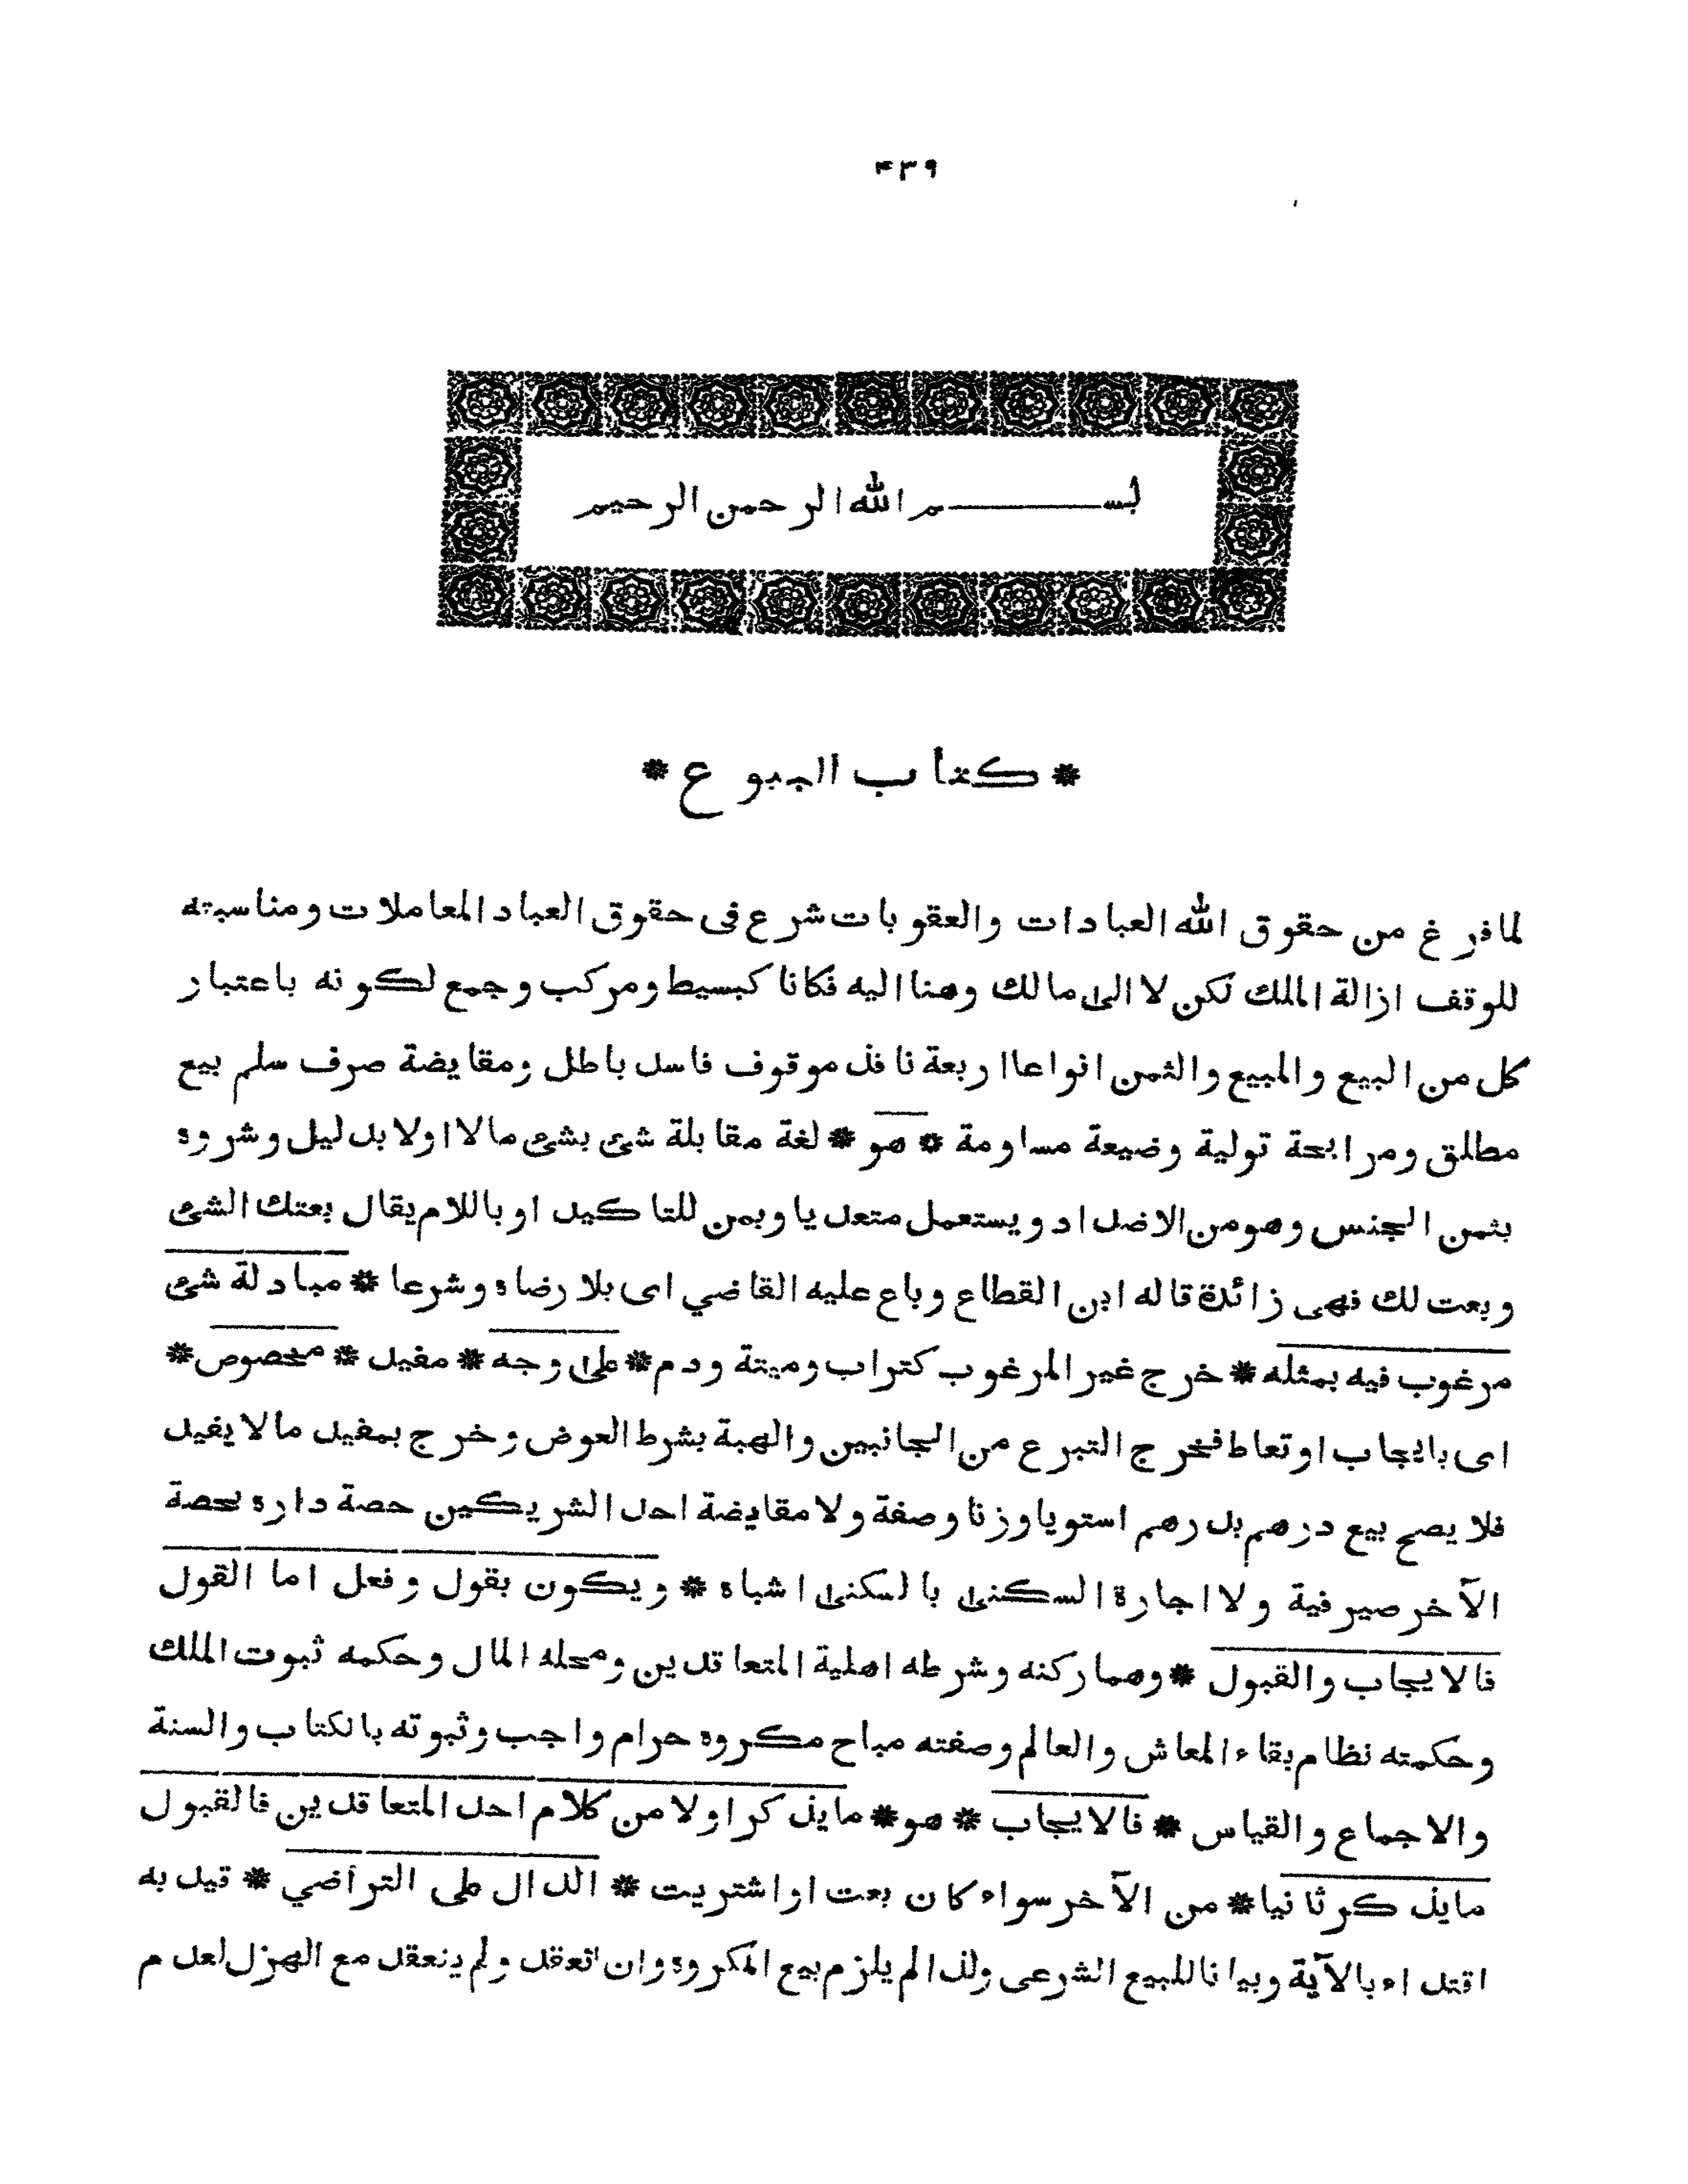 ۴۳۹
بسم الله الرحمن الرحيم
* كتاب البيوع *
لما فرغ من حقوق الله العبادات والعقوبات شرع فى حقوق العباد المعاملات ومناسبته
للوقف ازالة الملك لكن لا الى مالك وهنا اليه فكانا كبسيط ومركب وجمع لكونه باعتبار
كل من البيع والمبيع والثمن انواعا اربعة نافذ موقوف فاسد باطل ومقايضة صرف سلم بيع
مطلق ومرابحة تولية وضيعة مساومة * هو * لغة مقابلة شئ بشئ مالا اولا بدليل وشروه
بثمن الجنس وهو من الاضداد ويستعمل متعديا وبمن للتاكيد او باللام يقال بعتك الشئ
وبعت لك فهى زائدة قاله ابن القطاع وباع عليه القاضي اى بلا رضاه وشرعا * مبادلة شئ
مرغوب فيه بمثله * خرج غير المرغوب كتراب وميتة ودم * على وجه * مفيد * مخصوص *
اى بايجاب او تعاط فخرج التبرع من الجانبين والهبة بشرط العوض وخرج بمفيد ما لا يفيد
فلا يصح بيع درهم بدرهم استويا وزنا وصفة ولا مقايضة احد الشريكين حصة داره بحصة
الآخر صيرفية ولا اجارة السكنى بالسكنى اشباه * ويكون بقول وفعل اما القول
فالايجاب والقبول * وهما ركنه وشرطه اهلية المتعاقدين ومحله المال وحكمه ثبوت الملك
وحكمته نظام بقاء المعاش والعالم وصفته مباح مكروه حرام واجب وثبوته بالكتاب والسنة
والاجماع والقياس * فالايجاب * هو * مايذكر اولا من كلام احد المتعاقدين فالقبول
مايذكر ثانيا * من الآخر سواء كان بعت او اشتريت * الدال على التراضي * قيد به
اقتداء بالآية وبيانا للبيع الشرعى ولذا لم يلزم بيع المكروه وان انعقد ولم ينعقد مع الهزل لعدم